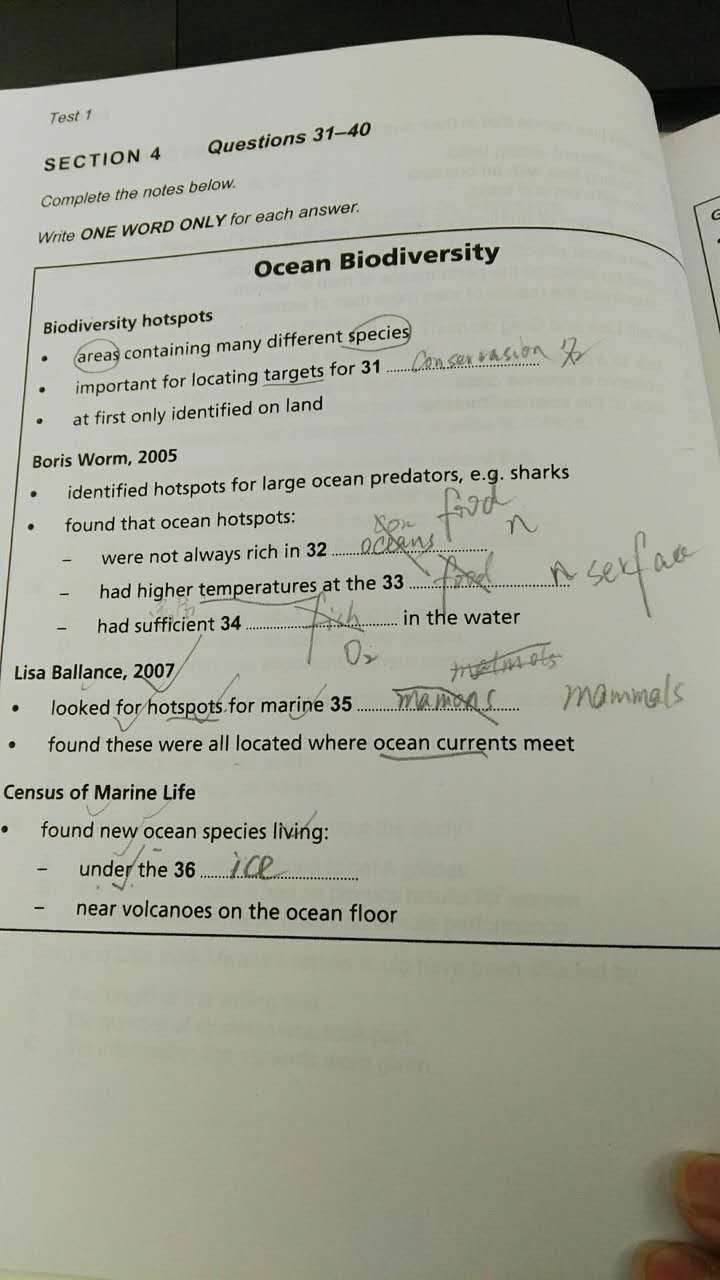 Test 1
SECTION 4 Questions 31–40
Complete the notes below.
Write ONE WORD ONLY for each answer.
Ocean Biodiversity
Biodiversity hotspots
• areas containing many different species
• important for locating targets for 31 Conservasion
• at first only identified on land
Boris Worm, 2005
• identified hotspots for large ocean predators, e.g. sharks
• found that ocean hotspots: food
– were not always rich in 32 oceans n
– had higher temperatures at the 33 food n serface
– had sufficient 34 fish in the water
O₂
Lisa Ballance, 2007
• looked for hotspots for marine 35 mamons mammals
• found these were all located where ocean currents meet
Census of Marine Life
• found new ocean species living:
– under the 36 ice
– near volcanoes on the ocean floor